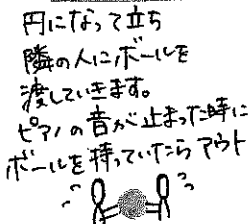 円になって立ち
隣の人にボールを
渡していきます。
ピアノの音が止まった時に
ボールを持っていたらアウト